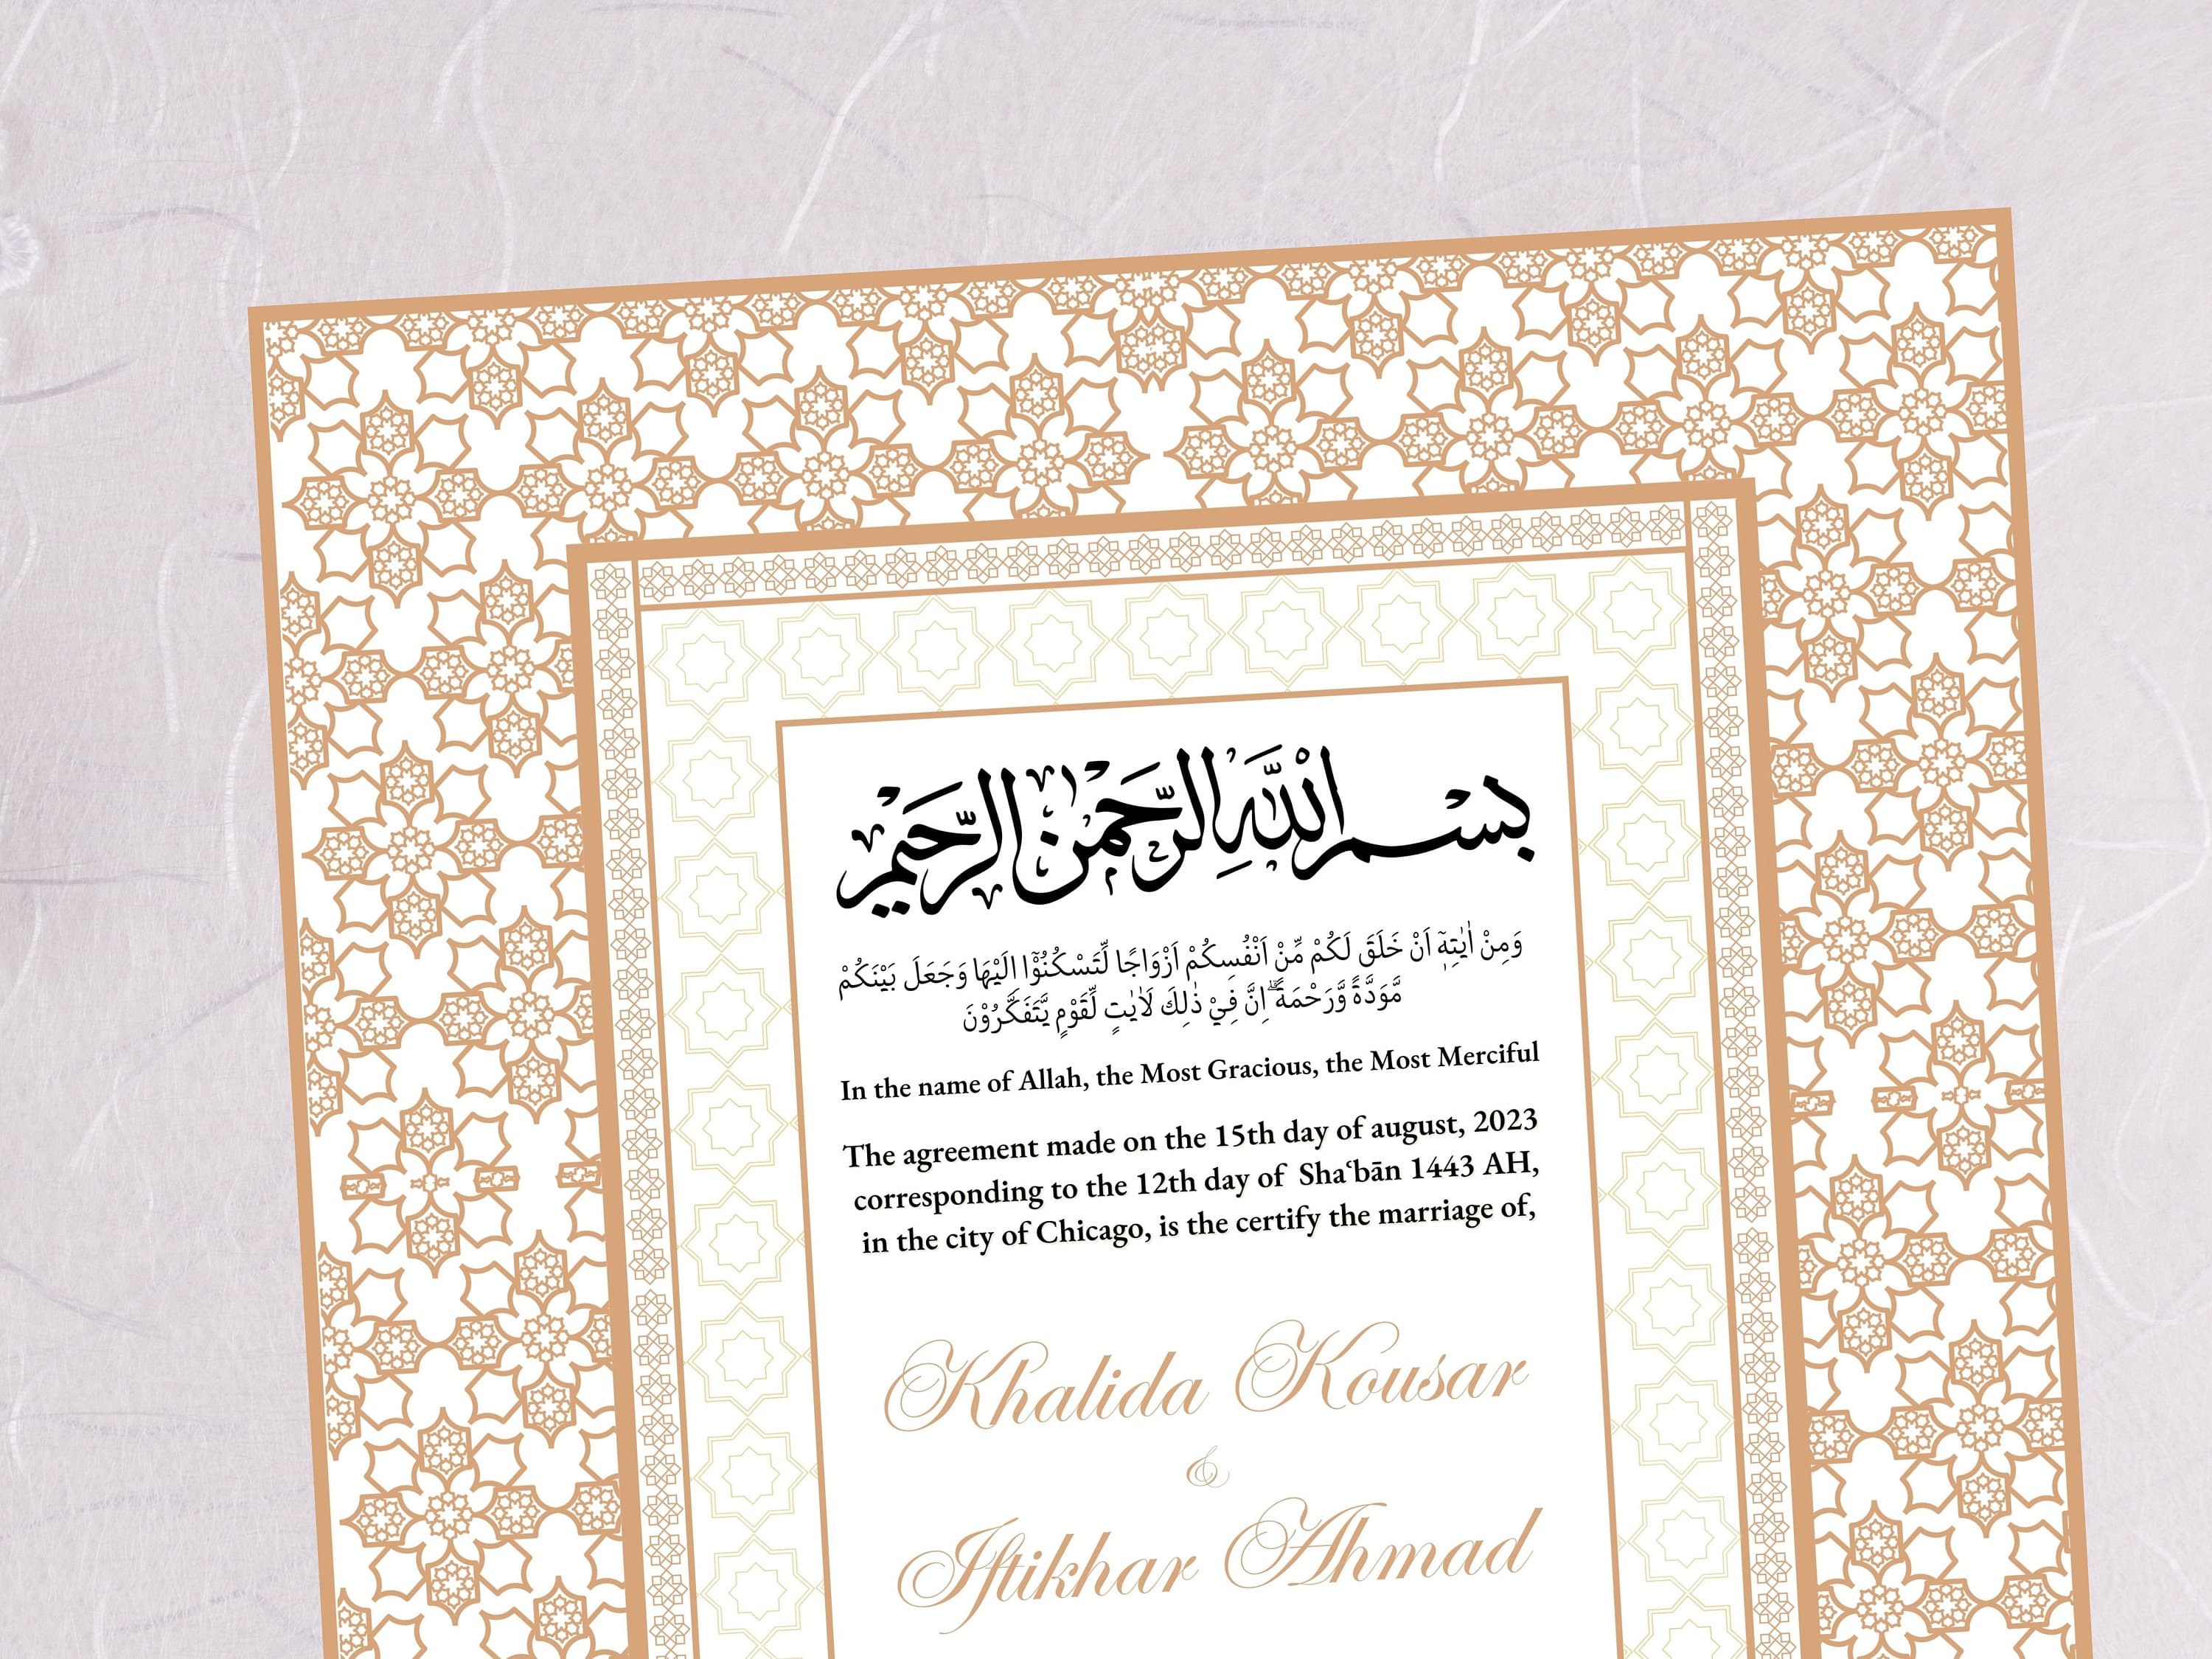 بِسْمِ اللَّهِ الرَّحْمٰنِ الرَّحِيْمِ
وَمِنْ اٰيٰتِهٖٓ اَنْ خَلَقَ لَكُمْ مِّنْ اَنْفُسِكُمْ اَزْوَاجًا لِّتَسْكُنُوْٓا اِلَيْهَا وَجَعَلَ بَيْنَكُمْ
مَّوَدَّةً وَّرَحْمَةً ۗاِنَّ فِيْ ذٰلِكَ لَاٰيٰتٍ لِّقَوْمٍ يَّتَفَكَّرُوْنَ
In the name of Allah, the Most Gracious, the Most Merciful
The agreement made on the 15th day of august, 2023
corresponding to the 12th day of Shaʿbān 1443 AH,
in the city of Chicago, is the certify the marriage of,
Khalida Kousar
&
Iftikhar Ahmad